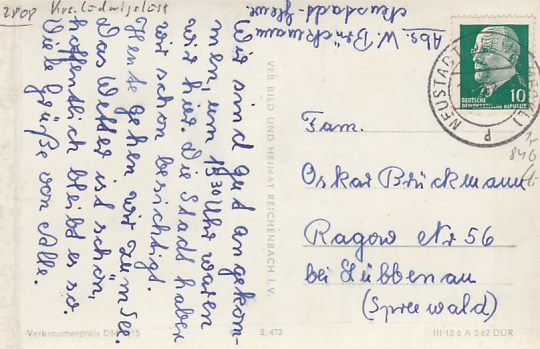 2808 Krs. Ludwigslust
Abs. W. Brückmann
Neustadt-Glewe
Wir sind gut angekom-
men, um 19³⁰ Uhr waren
wir hier. Die Stadt haben
wir schon besichtigt.
Heute gehen wir zum See.
Das Wetter ist schön,
hoffentlich bleibt es so.
Viele Grüße von Alle.
VEB BILD UND HEIMAT REICHENBACH I. V.
10
DEUTSCHE
DEMOKRATISCHE REPUBLIK
NEUSTADT
d
846
Fam.
Oskar Brückmann
Ragow Nr 56
bei Lübbenau
(Spreewald)
Verbraucherpreis DM 0,15
2, 473
III 18 6 A 3 62 DDR